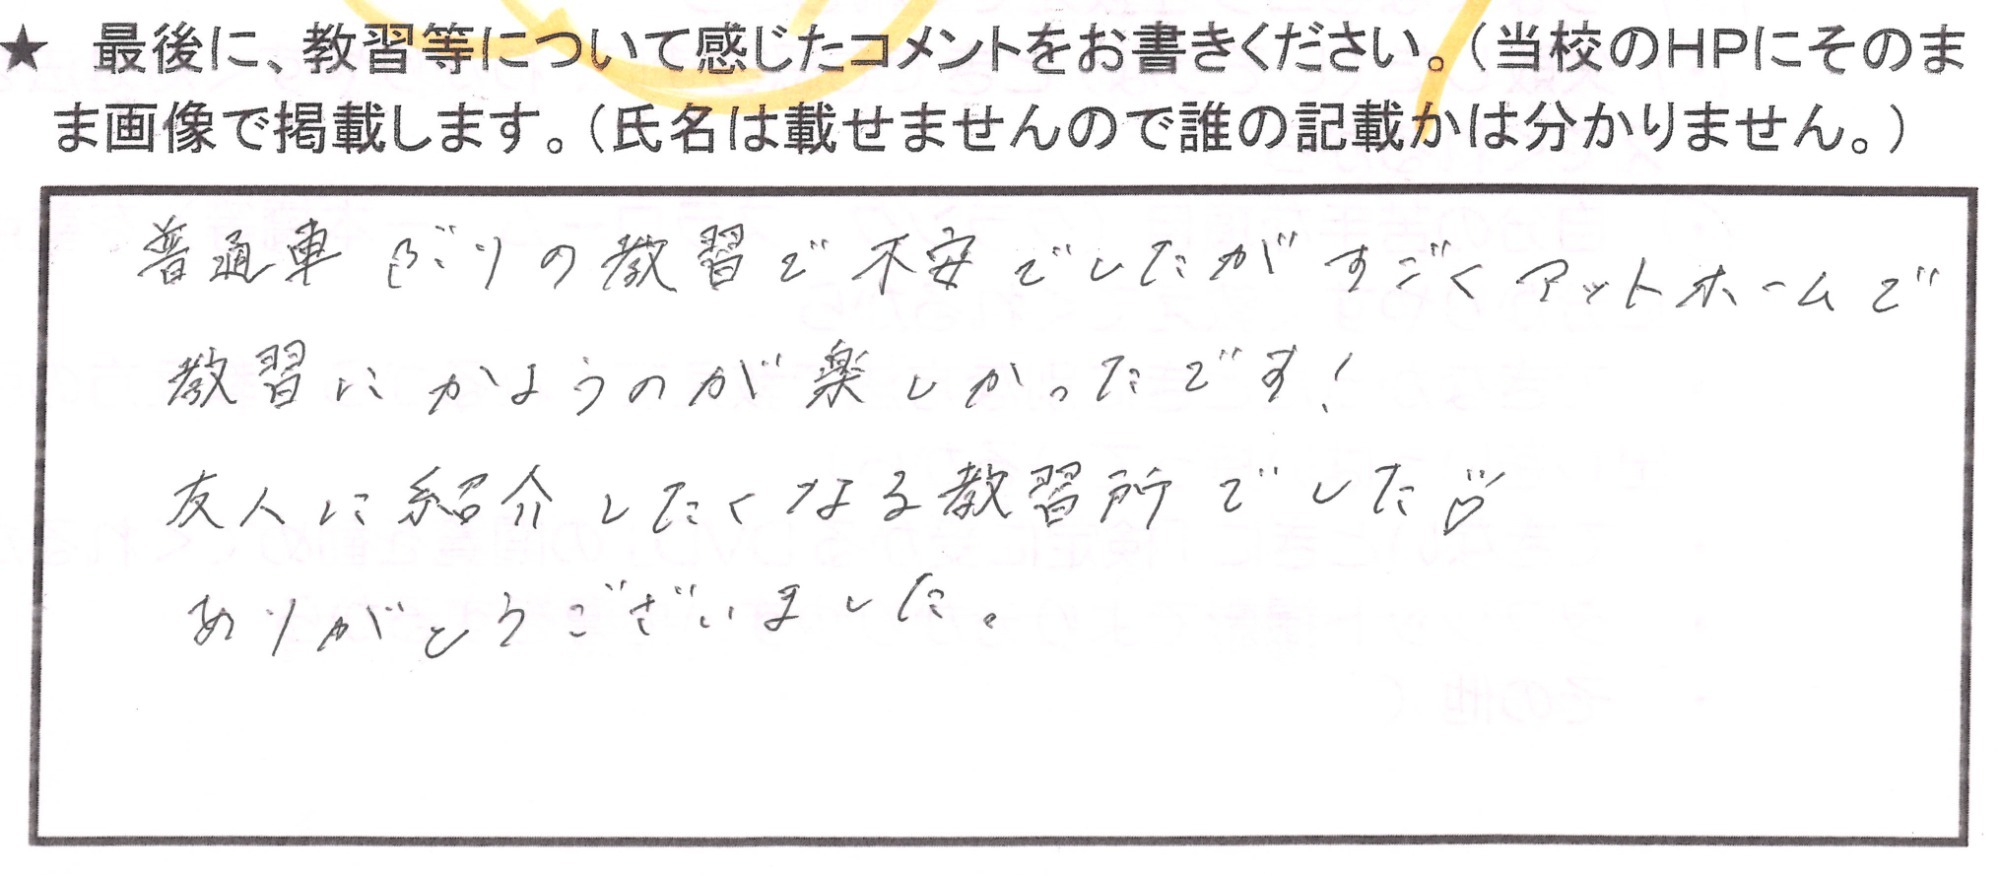 ★ 最後に、教習等について感じたコメントをお書きください。（当校のHPにそのま
ま画像で掲載します。（氏名は載せませんので誰の記載かは分かりません。）
普通車ぶりの教習で不安でしたがすごくアットホームで
教習にかようのが楽しかったです！
友人に紹介したくなる教習所でした♡
ありがとうございました。